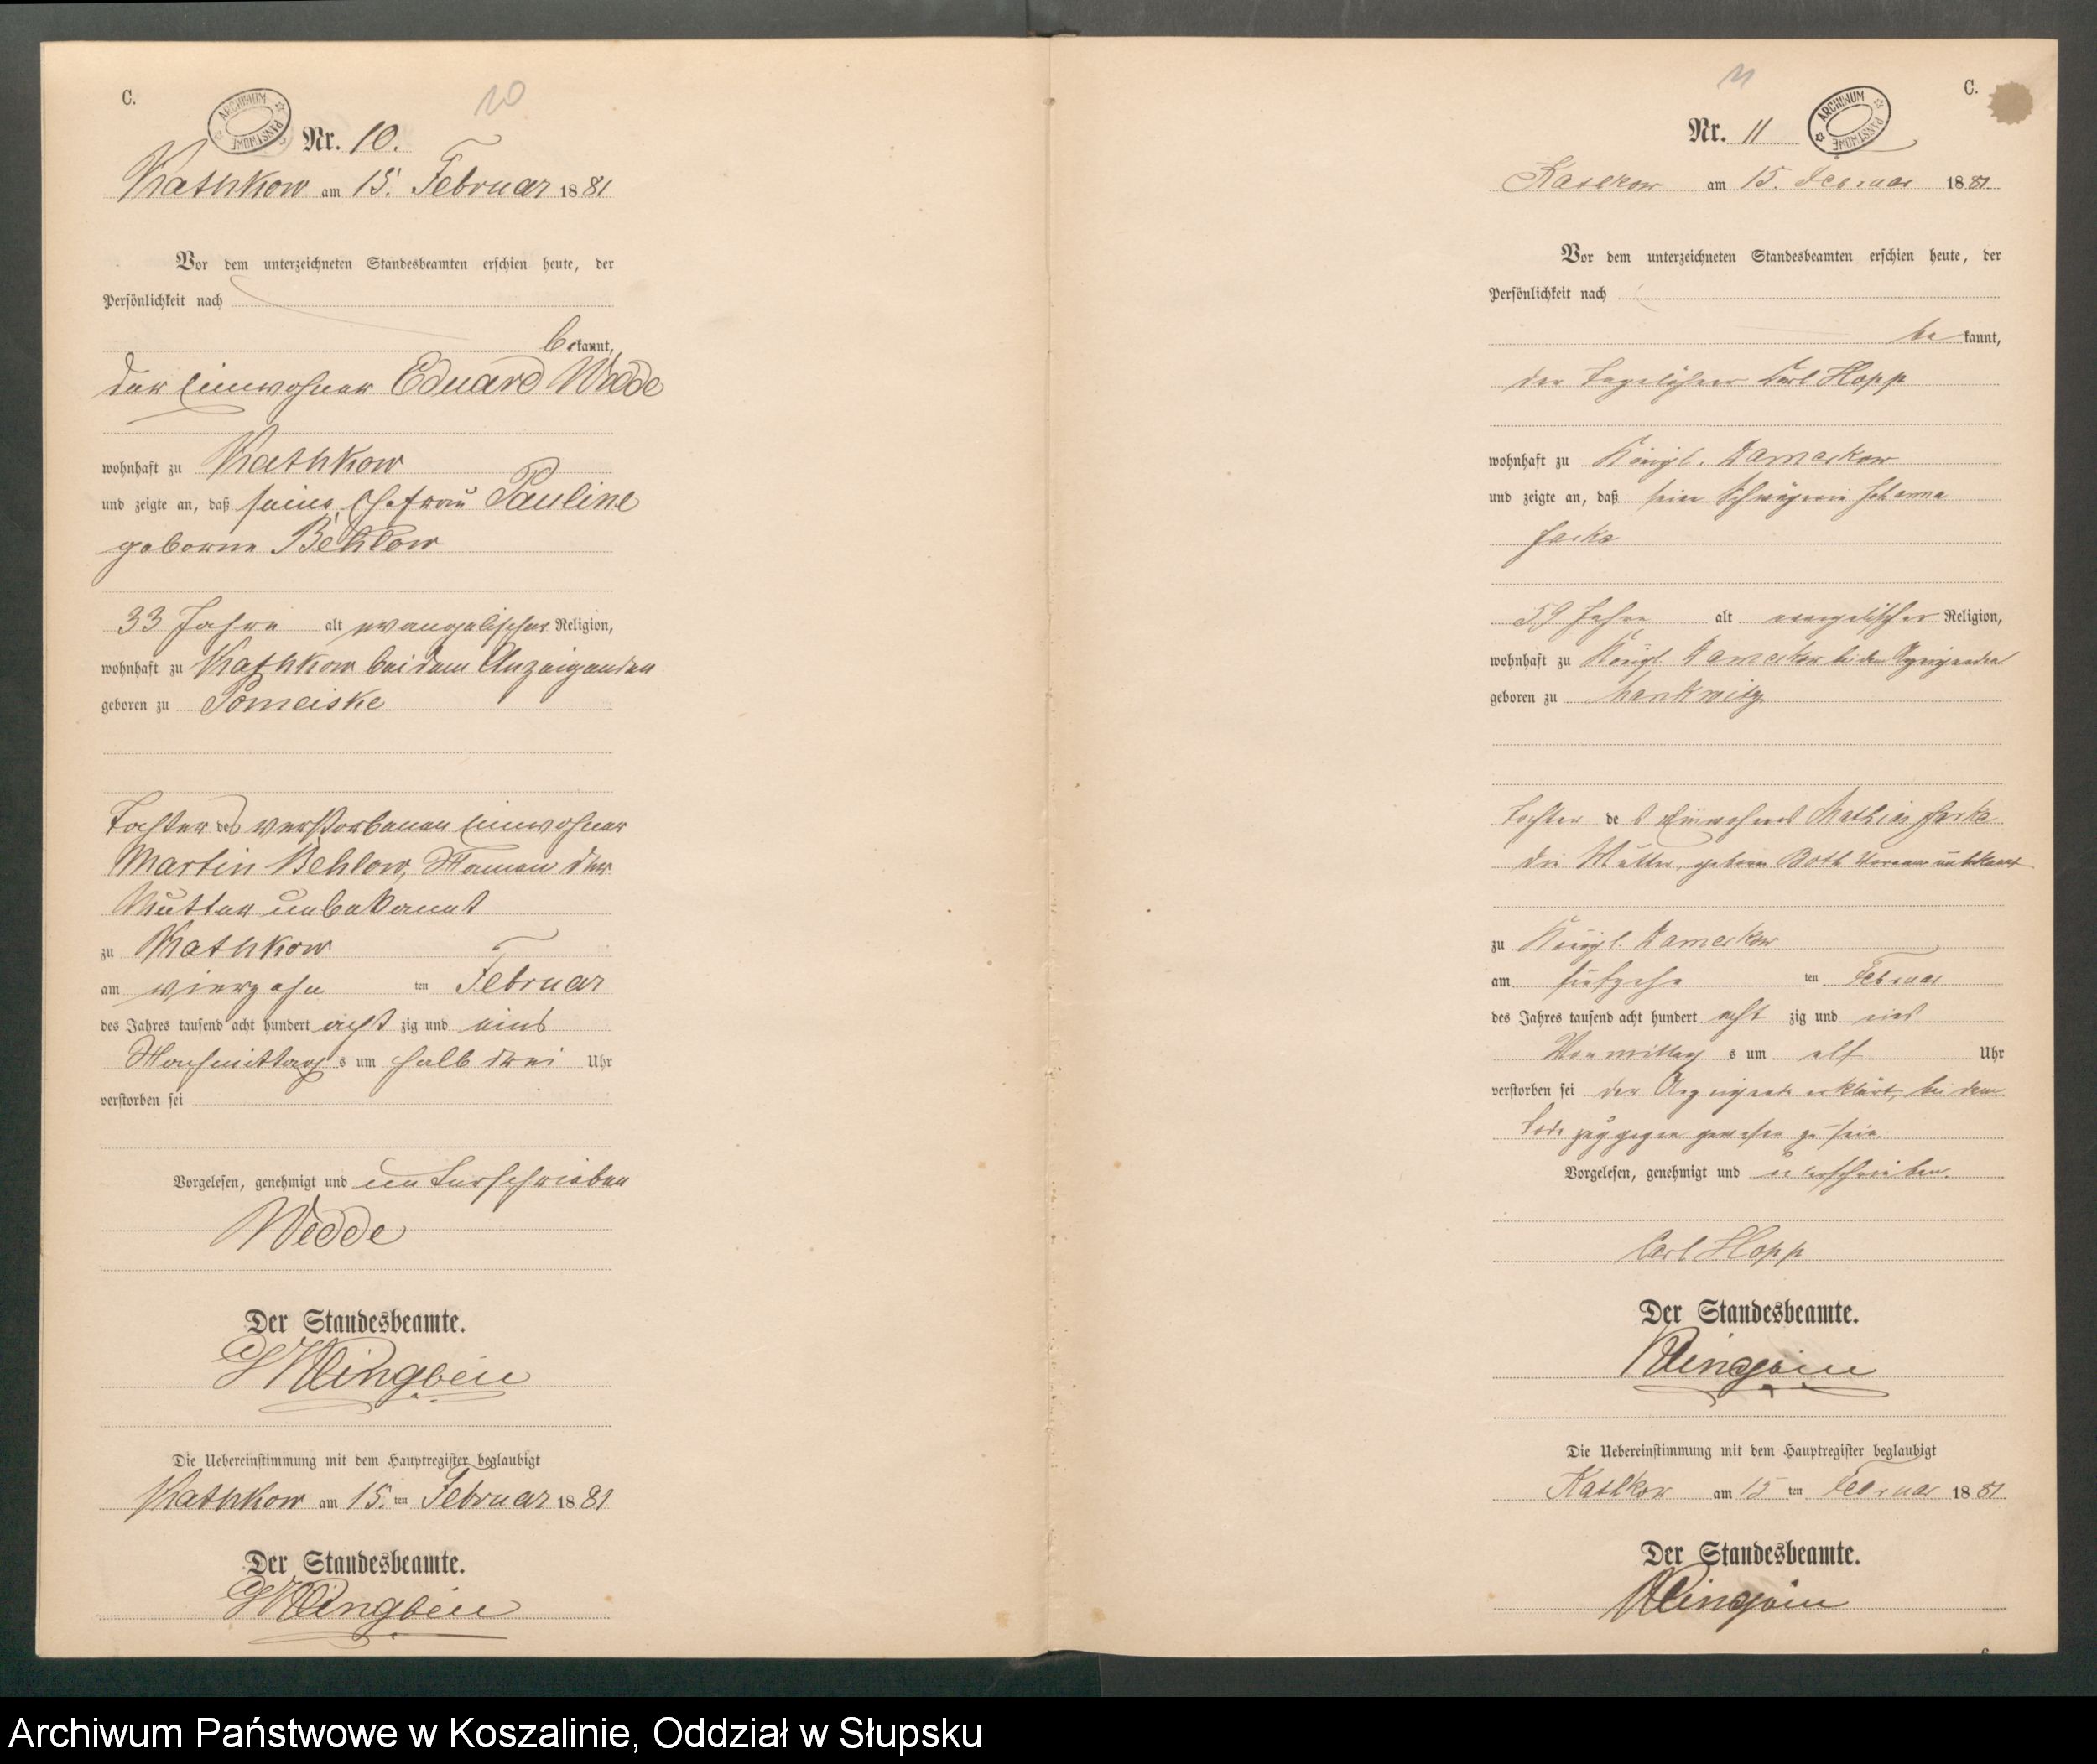 C.
ARCHIWUM PAŃSTWOWE
10
Nr. 10.
Kathkow am 15. Februar 1881
Vor dem unterzeichneten Standesbeamten erschien heute, der
Persönlichkeit nach
bekannt,
der Einwohner Eduard Wedde
wohnhaft zu Kathkow
und zeigte an, daß seine Ehefrau Pauline
geborne Behlow
33 Jahre alt evangelischer Religion,
wohnhaft zu Kathkow bei dem Anzeigenden
geboren zu Pomeiske
Tochter des verstorbenen Einwohner
Martin Behlow, Namen der
Mutter unbekannt
zu Kathkow
am vierzehn ten Februar
des Jahres tausend acht hundert acht zig und eins
Nachmittags um halb drei Uhr
verstorben sei
Vorgelesen, genehmigt und unterschrieben
Wedde
Der Standesbeamte.
Klingbeil
Die Uebereinstimmung mit dem Hauptregister beglaubigt
Kathkow am 15. ten Februar 1881
Der Standesbeamte.
Klingbeil
11
C.
Nr. 11
ARCHIWUM PAŃSTWOWE
Kathkow am 15. Februar 1881
Vor dem unterzeichneten Standesbeamten erschien heute, der
Persönlichkeit nach
bekannt,
der Tagelöhner Carl Hopp
wohnhaft zu Königl. Damerkow
und zeigte an, daß seine Schwägerin Johanna
59 Jahre alt evangelischer Religion,
wohnhaft zu Königl Damerkow bei dem Anzeigenden
geboren zu
Tochter des Einwohners Mathias
die Mutter, geborne Both Vorname unbekannt
zu Königl. Damerkow
am fünfzehn ten Februar
des Jahres tausend acht hundert acht zig und eins
Vormittags um elf Uhr
verstorben sei der Anzeigende erklärt, bei dem
Tode zugegen gewesen zu sein.
Vorgelesen, genehmigt und unterschrieben.
Carl Hopp
Der Standesbeamte.
Klingbeil
Die Uebereinstimmung mit dem Hauptregister beglaubigt
Kathkow am 15 ten Februar 1881
Der Standesbeamte.
Klingbeil
Archiwum Państwowe w Koszalinie, Oddział w Słupsku